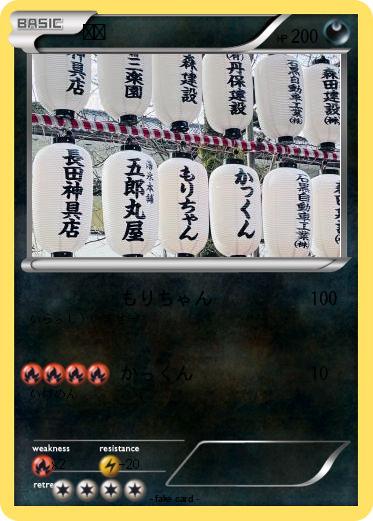 BASIC
HP 200
神具店
二楽園
森建設
(有)丹保建設
石黒自動車工業(株)
森田建設(株)
長田神具店
清水本舗
五郎丸屋
もりちゃん
かっくん
石黒自動車工業(株)
もりちゃん 100
いらっし
かっくん 10
いけめん
weakness
resistance
x2
-20
retre
- fake card -